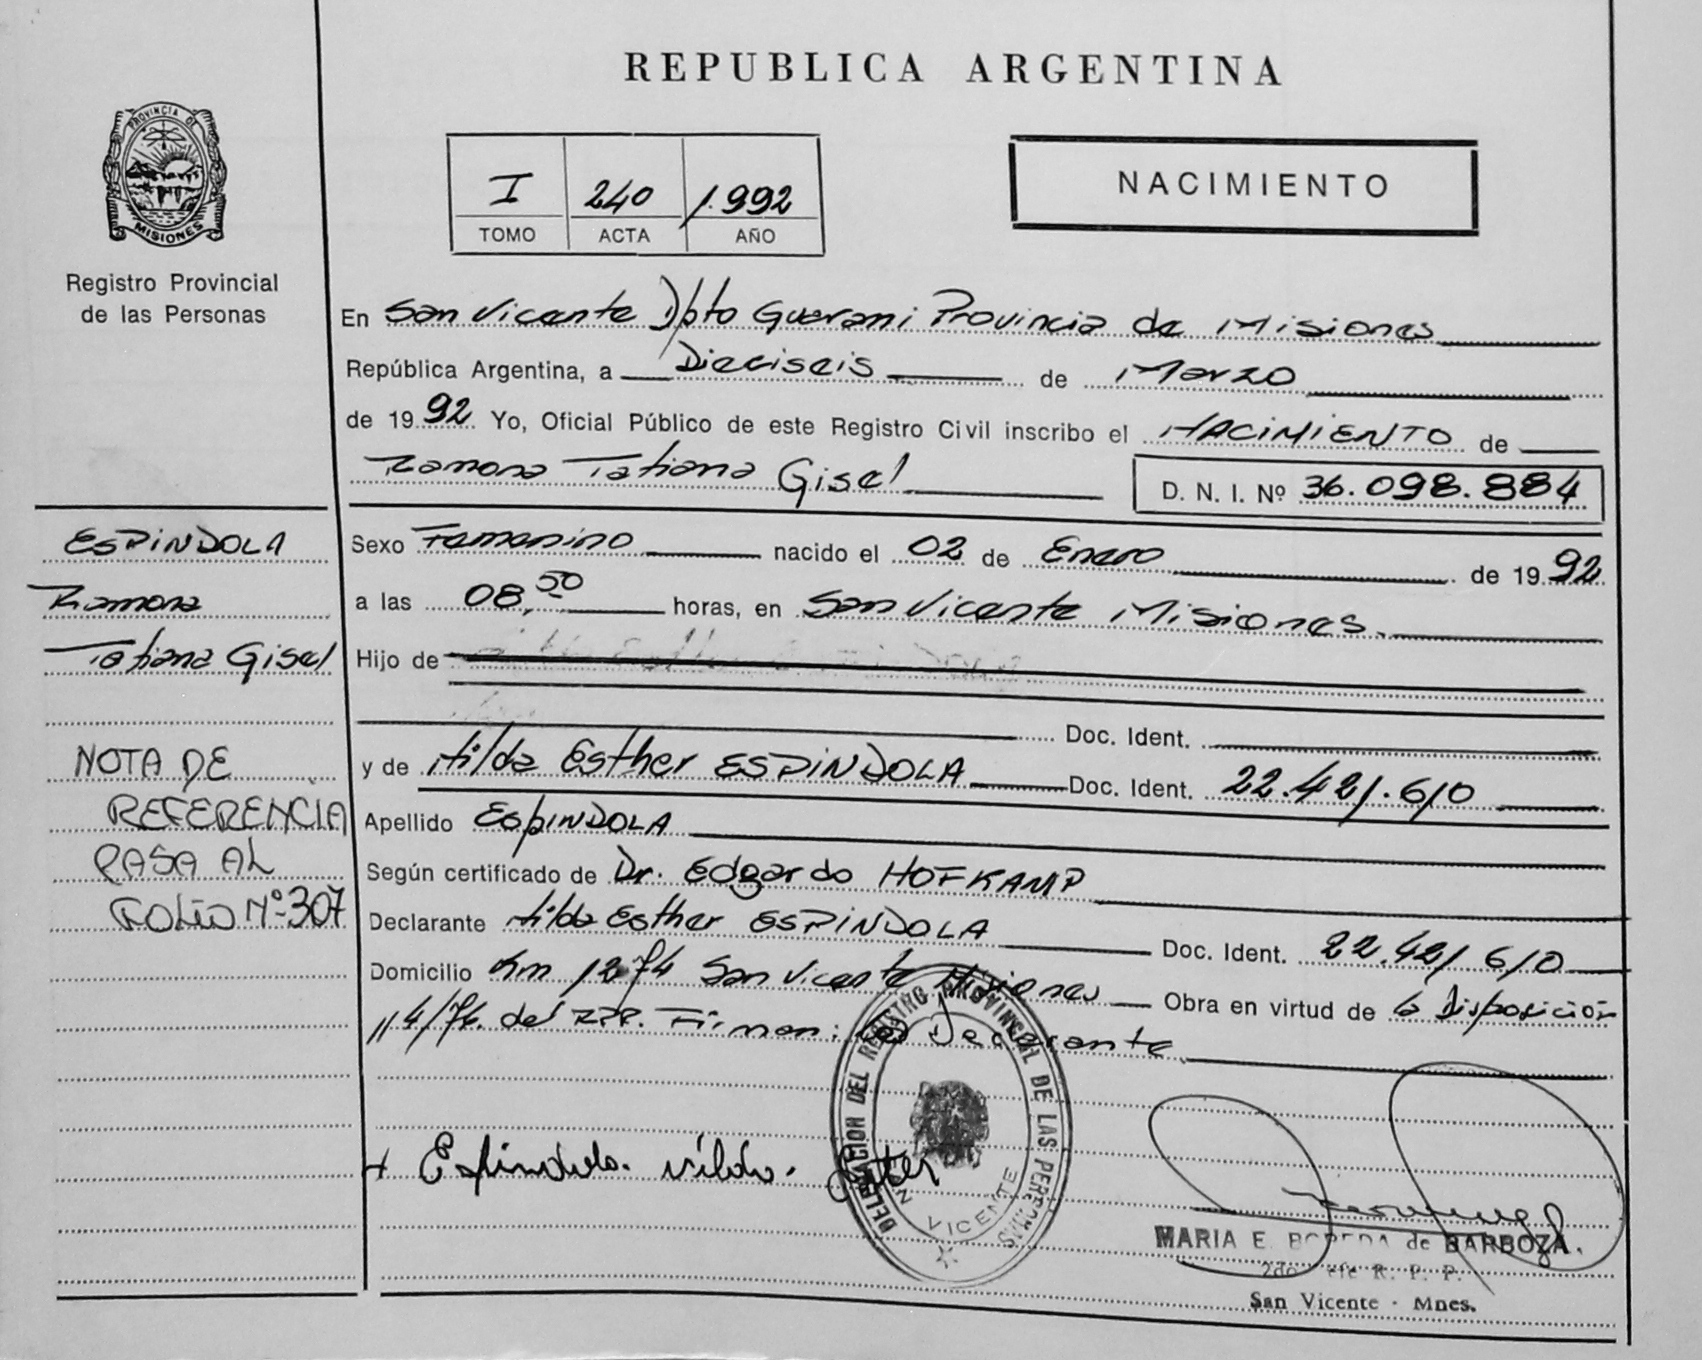 REPUBLICA ARGENTINA
PROVINCIA DE
MISIONES
Registro Provincial
de las Personas
I 240 1.992
TOMO ACTA AÑO
NACIMIENTO
En San Vicente Dpto Guarani Provincia de Misiones
República Argentina, a Dieciseis de Marzo
de 19 92 Yo, Oficial Público de este Registro Civil inscribo el NACIMIENTO de
Ramona Tatiana Gisel D. N. I. Nº 36.098.884
ESPINDOLA
Ramona
Tatiana Gisel
NOTA DE
REFERENCIA
PASA AL
FOLIO Nº 307
Sexo Femenino nacido el 02 de Enero de 19 92
a las 08,50 horas, en San Vicente Misiones.
Hijo de
Doc. Ident.
y de Hilda Esther ESPINDOLA Doc. Ident. 22.421.610
Apellido EspINDOLA
Según certificado de Dr. Edgardo HOFKAMP
Declarante Hilda Esther ESPINDOLA Doc. Ident. 22.421.610
Domicilio Km 1274 San Vicente Misiones Obra en virtud de la Disposición
114/76. del R.P.P. Firman: la Declarante
Espindula. ilda. Ester
DELEGACION DEL REGISTRO PROVINCIAL DE LAS PERSONAS
VICENTE
MARIA E. de BARBOZA.
2do R. P. P.
San Vicente - Mnes.